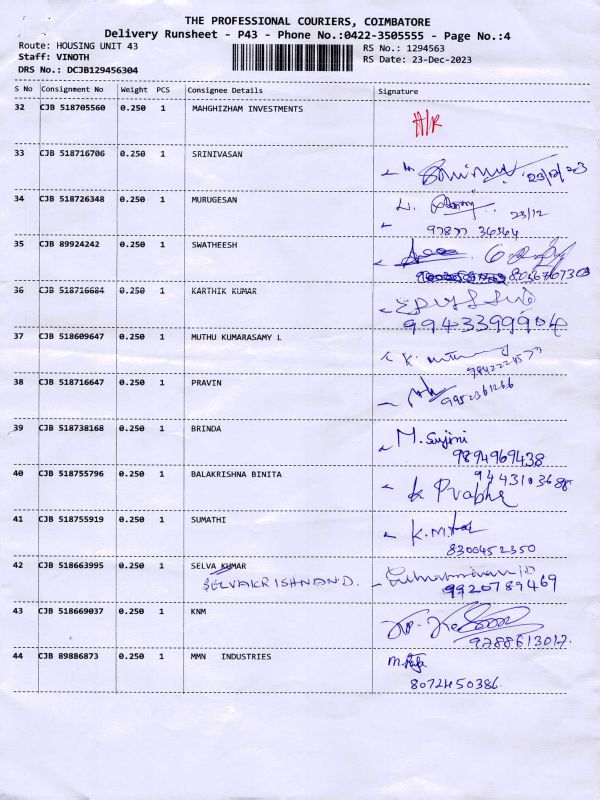 THE PROFESSIONAL COURIERS, COIMBATORE
Delivery Runsheet - P43 - Phone No.:0422-3505555 - Page No.:4
Route: HOUSING UNIT 43 RS No.: 1294563
Staff: VINOTH RS Date: 23-Dec-2023
DRS No.: DCJB129456304
S No Consignment No Weight PCS Consignee Details Signature
32 CJB 518705560 0.250 1 MAHGHIZHAM INVESTMENTS
33 CJB 518716706 0.250 1 SRINIVASAN
34 CJB 518726348 0.250 1 MURUGESAN 23/12
35 CJB 89924242 0.250 1 SWATHEESH
36 CJB 518716684 0.250 1 KARTHIK KUMAR
9943399904
37 CJB 518609647 0.250 1 MUTHU KUMARASAMY L
38 CJB 518716647 0.250 1 PRAVIN
39 CJB 518738168 0.250 1 BRINDA M. Sujini
9894969438
40 CJB 518755796 0.250 1 BALAKRISHNA BINITA
K Prabha
41 CJB 518755919 0.250 1 SUMATHI
8300452350
42 CJB 518663995 0.250 1 SELVA KUMAR
SELVAKRISHNAN D. 9920789469
43 CJB 518669037 0.250 1 KNM
9788613017
44 CJB 89886873 0.250 1 MMN INDUSTRIES M. Raja
8072450386